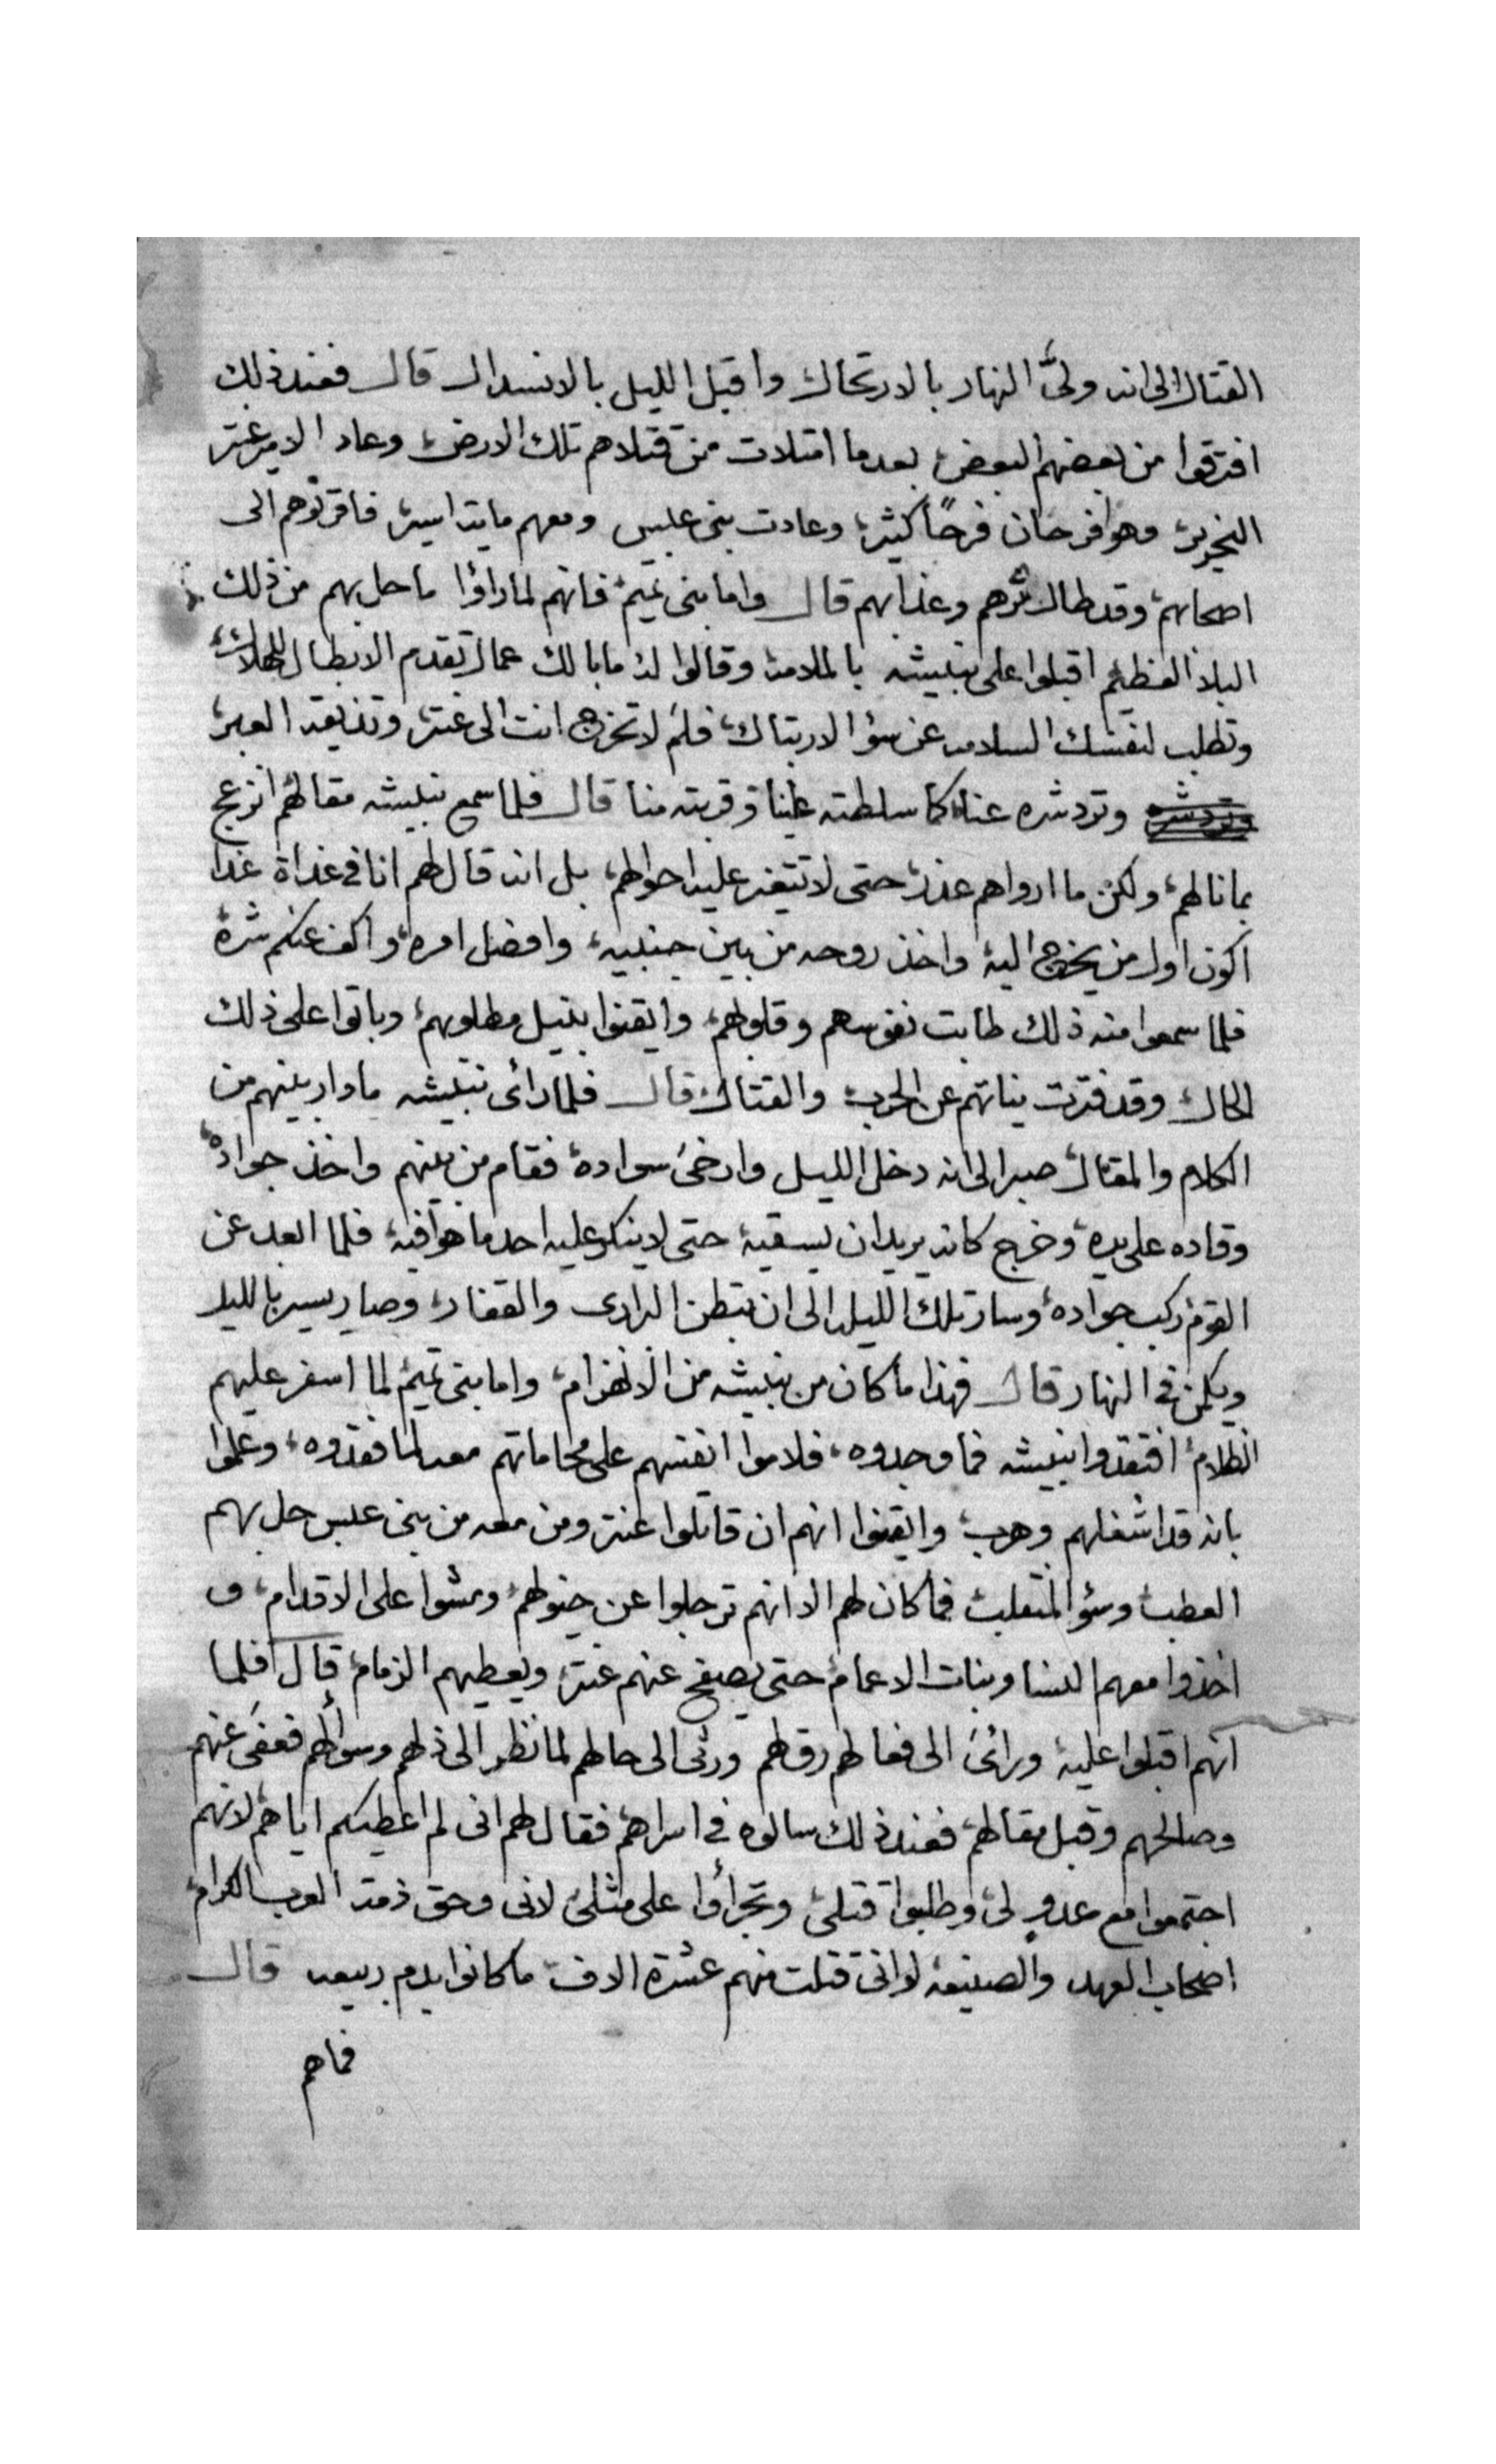 القتال الى انه ولىَّ النهار بالارتحال واقبل الليل بالانسدال قال فعند ذلك
افترقوا من بعضهم البعض بعدما امتلات من قتلاهم تلك الارض وعاد الامير عنتر
النحرير وهو فرحان فرحًا كثير وعادت بنى عبس ومعهم مايته اسير فاقرنوهم الى
اصحابهم وقد طال شرهم وعذابهم قال واما بنى تميم فانهم لما راؤا ما حل بهم من ذلك
البلاء العظيم اقبلوا على نبيشه بالملامه وقالوا له ما بالك عمال تقدم الابطال للهلاك
وتطلب لنفسك السلامه عن سؤ الارتباك فلم لا تخرج انت الى عنتر وتذيقه العبر
وترد شره وترد شره عنا كما سلطته علينا وقربته منا قال فلما سمع نبيشه مقالهم انزعج
بما نالهم ولكن ما ارواهم عذر حتى لا تتغير عليه احوالهم بل انه قال لهم انا فى غداة غدا
اكون اول من يخرج اليه واخذ روحه من بين جنبيه وافضل امره واكف عنكم شره
فلما سمعوا منه ذلك طابت نفوسهم وقلوبهم وايقنوا بنيل مطلوبهم وباتوا على ذلك
الحال وقد فترت نياتهم عن الحرب والقتال قال فلما رائى نبيشه ما دار بينهم من
الكلام والمقال صبر الى انه دخل الليل وارخى سواده فقام من بينهم واخذ جواده
وقاده على يده وخرج كانه يريد ان يسقيه حتى لا ينكر عليه احد ما هو فيه فلما ابعد عن
القوم ركب جواده وسار تلك الليله الى ان تبطن البرارى والقفار وصار يسير بالليل
ويكمن فى النهار قال فهذا ما كان من نبيشه من الانهزام واما بنى تميم لما اسفر عليهم
الظلام افتقدوا نبيشه فما وجدوه فلاموا انفسهم على محاماتهم معه لما فقدوه وعلموا
بانه قد اشغلهم وهرب وايقنوا انهم ان قاتلوا عنتر ومن معه من بنى عبس حل بهم
العطب وسؤ المنقلب فما كان لهم الا انهم ترجلوا عن خيولهم ومشوا على الاقدام و
اخذوا معهم النسا وبنات الاعمام حتى يصفح عنهم عنتر ويعطيهم الزمام قال فلما
انهم اقبلوا عليه ورائى الى فعالهم رق لهم ورثى الى حالهم لما نظر الى ذلهم وسوألهم فعفى عنهم
وصالحهم وقبل مقالهم فعند ذلك سالوه فى اسراهم فقال لهم انى لم اعطيكم اياهم لانهم
اجتمعوا مع عدوٍ لى وطلبوا قتلى وتجرأوا على مثلى لانى وحق ذمة العرب الكرام
اصحاب العهد والصنيعه لو اننى قتلت منهم عشرة الاف ما كانوا بدم ربيعه قال
فماهم